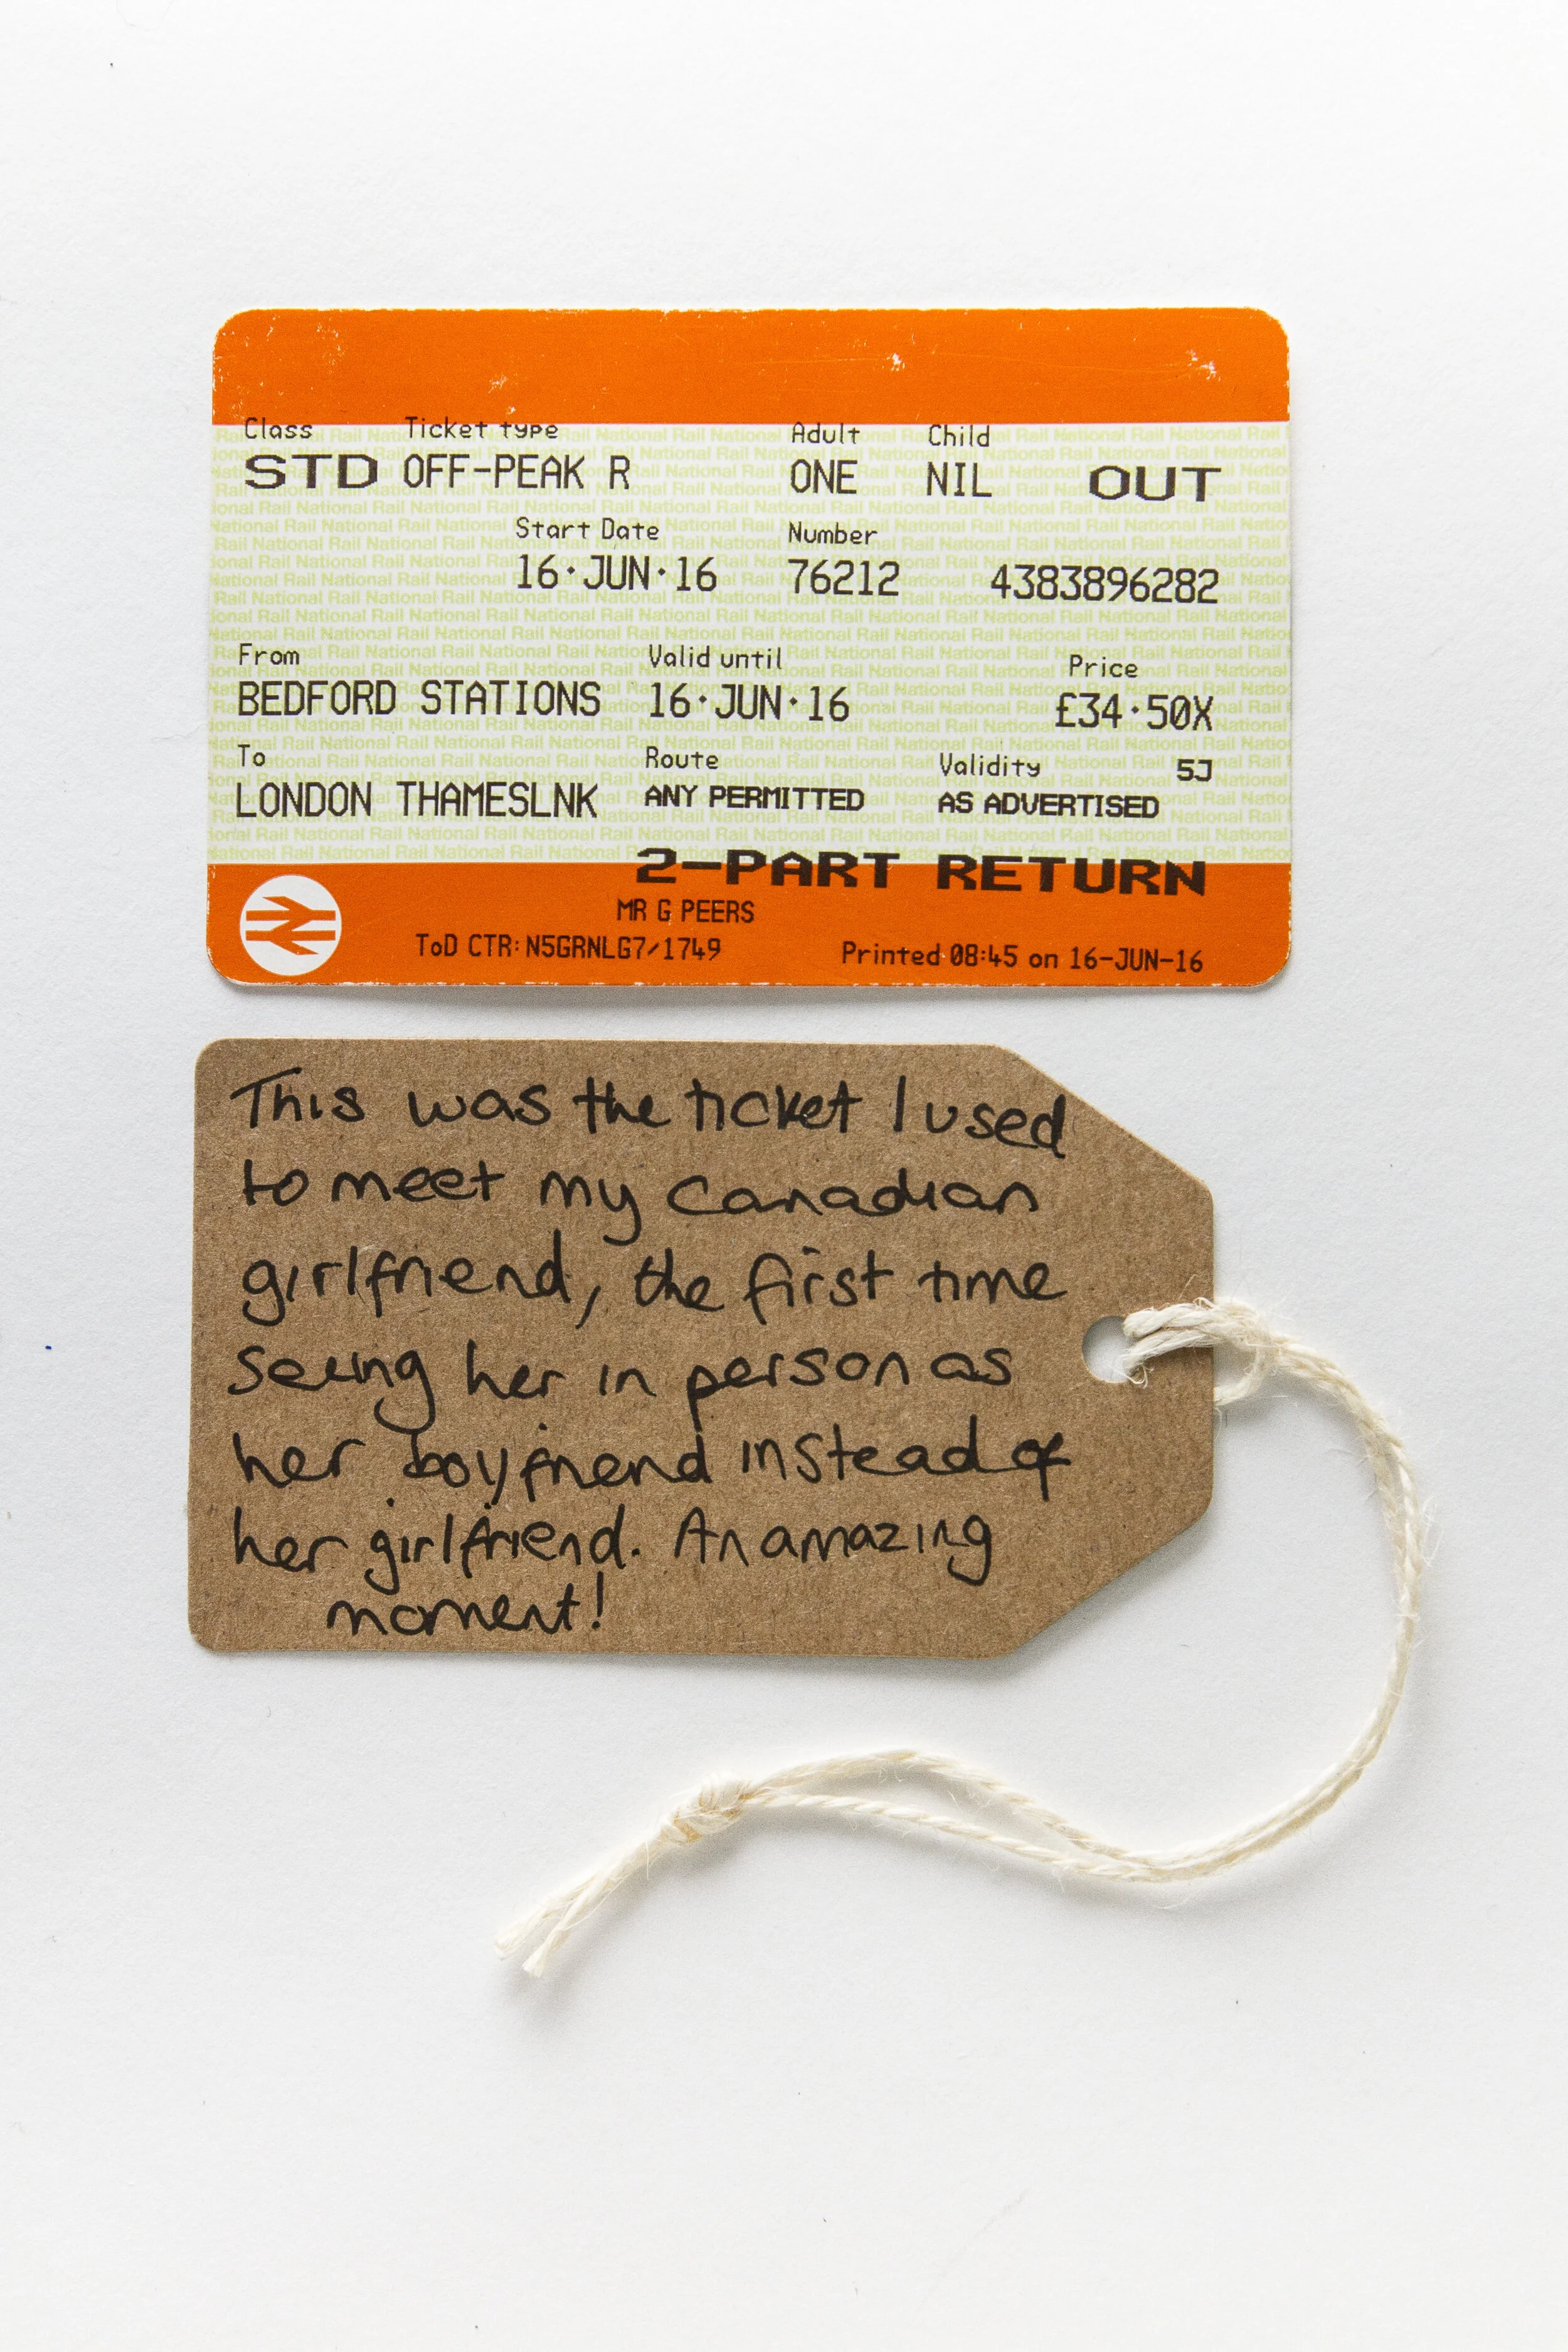 Class Ticket type Adult Child
STD OFF-PEAK R ONE NIL OUT
Start Date Number
16·JUN·16 76212 4383896282
From Valid until Price
BEDFORD STATIONS 16·JUN·16 £34·50X
To Route Validity 5J
LONDON THAMESLNK ANY PERMITTED AS ADVERTISED
2-PART RETURN
MR G PEERS
ToD CTR: N5GRNLG7/1749 Printed 08:45 on 16-JUN-16
This was the ticket I used
to meet my Canadian
girlfriend, the first time
seeing her in person as
her boyfriend instead of
her girlfriend. An amazing
moment!